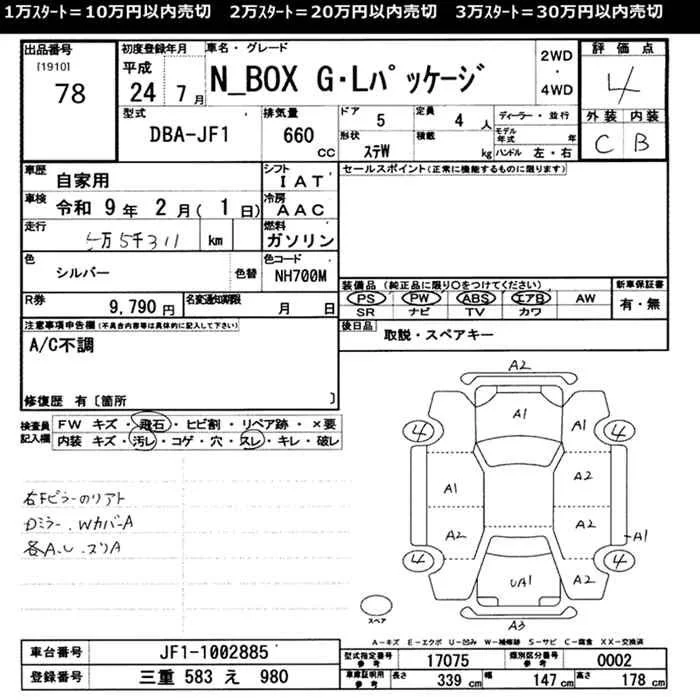 1万ｽﾀｰﾄ＝10万円以内売切　2万ｽﾀｰﾄ＝20万円以内売切　3万ｽﾀｰﾄ＝30万円以内売切
出品番号 初度登録年月 車名・グレード 2WD・4WD 評価点
[1910] 78 平成 24 7月 N_BOX G・Lﾊﾟｯｹｰｼﾞ 4
外装 内装
C B
型式 DBA-JF1 排気量 660 cc ドア 5 定員 4 人 ディーラー・並行
形状 ｽﾃW 積載 kg モデル年式 年 ハンドル 左・右
車歴 自家用 シフト IAT セールスポイント(正常に機能するものに限ります)
車検 令和 9年 2月( 1日) 冷房 AAC
走行 5千311 km 燃料 ガソリン
色 シルバー 色替 色コード NH700M
装備品 (純正品に限り○をつけてください) 新車保証書
PS PW ABS エアB AW 有・無
SR ナビ TV カワ
R券 9,790 円 名変通知期限 月 日
後日品 取説・スペアキー
注意事項申告欄(不具合内容等は具体的に記入して下さい)
A/C不調
修復歴 有〔箇所 〕
検査員記入欄 FW キズ・飛石・ヒビ割・リペア跡・×要
内装 キズ・汚レ・コゲ・穴・スレ・キレ・破レ
右Fピラーのリアト
Dミラー.WカバーA
各A.U.スリA
A2
A1
4 4
A1 A2
A2 A2 A1
4 4
UA1 A2
A3
スペア
A−キズ E−エクボ U−凹み W−補修跡 S−サビ C−腐食 XX−交換済
車台番号 JF1-1002885 型式指定番号 参考 17075 類別区分番号 参考 0002
登録番号 三重 583 え 980 車庫証明用 参考 長さ 339 cm 幅 147 cm 高さ 178 cm